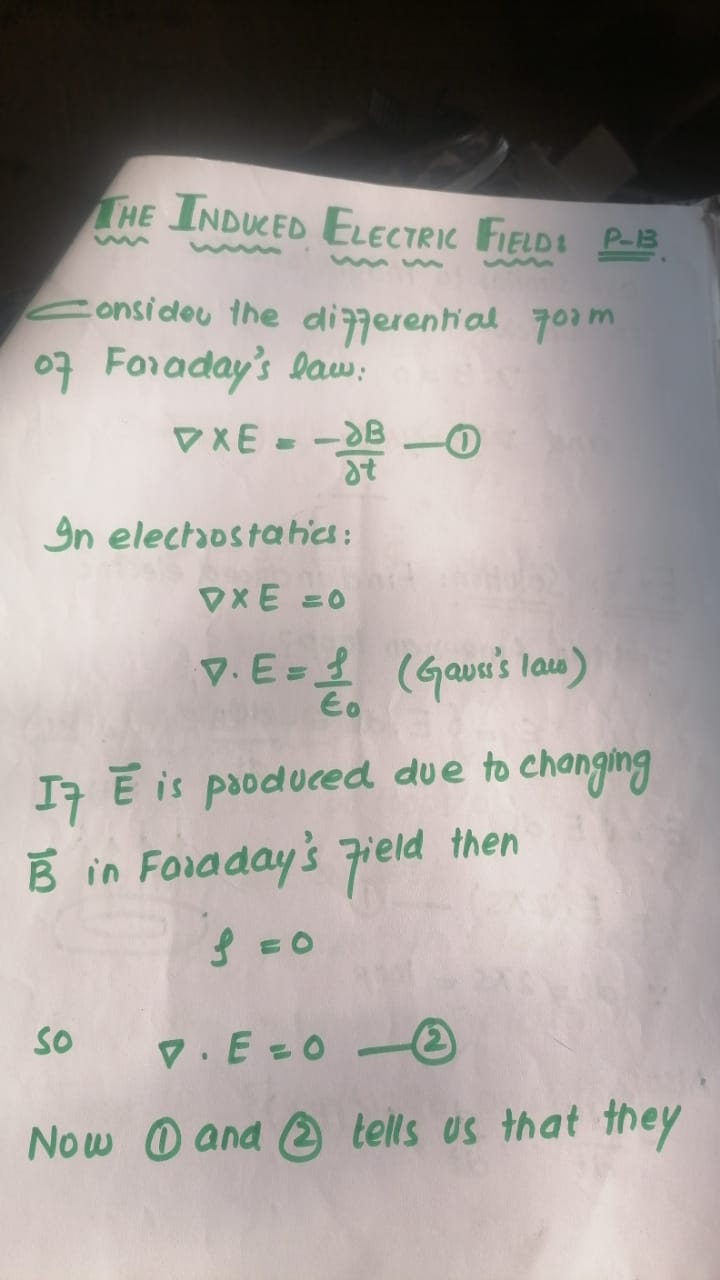 THE INDUCED ELECTRIC FIELD: P-13.
Consider the differential form
of Faraday's law:
∇ X E = -∂B/∂t —①
In electrostatics:
∇ X E = 0
∇. E = ρ/ϵ₀ (Gauss's law)
If E̅ is produced due to changing
B̅ in Faraday's field then
ρ = 0
so ∇. E = 0 —②
Now ① and ② tells us that they